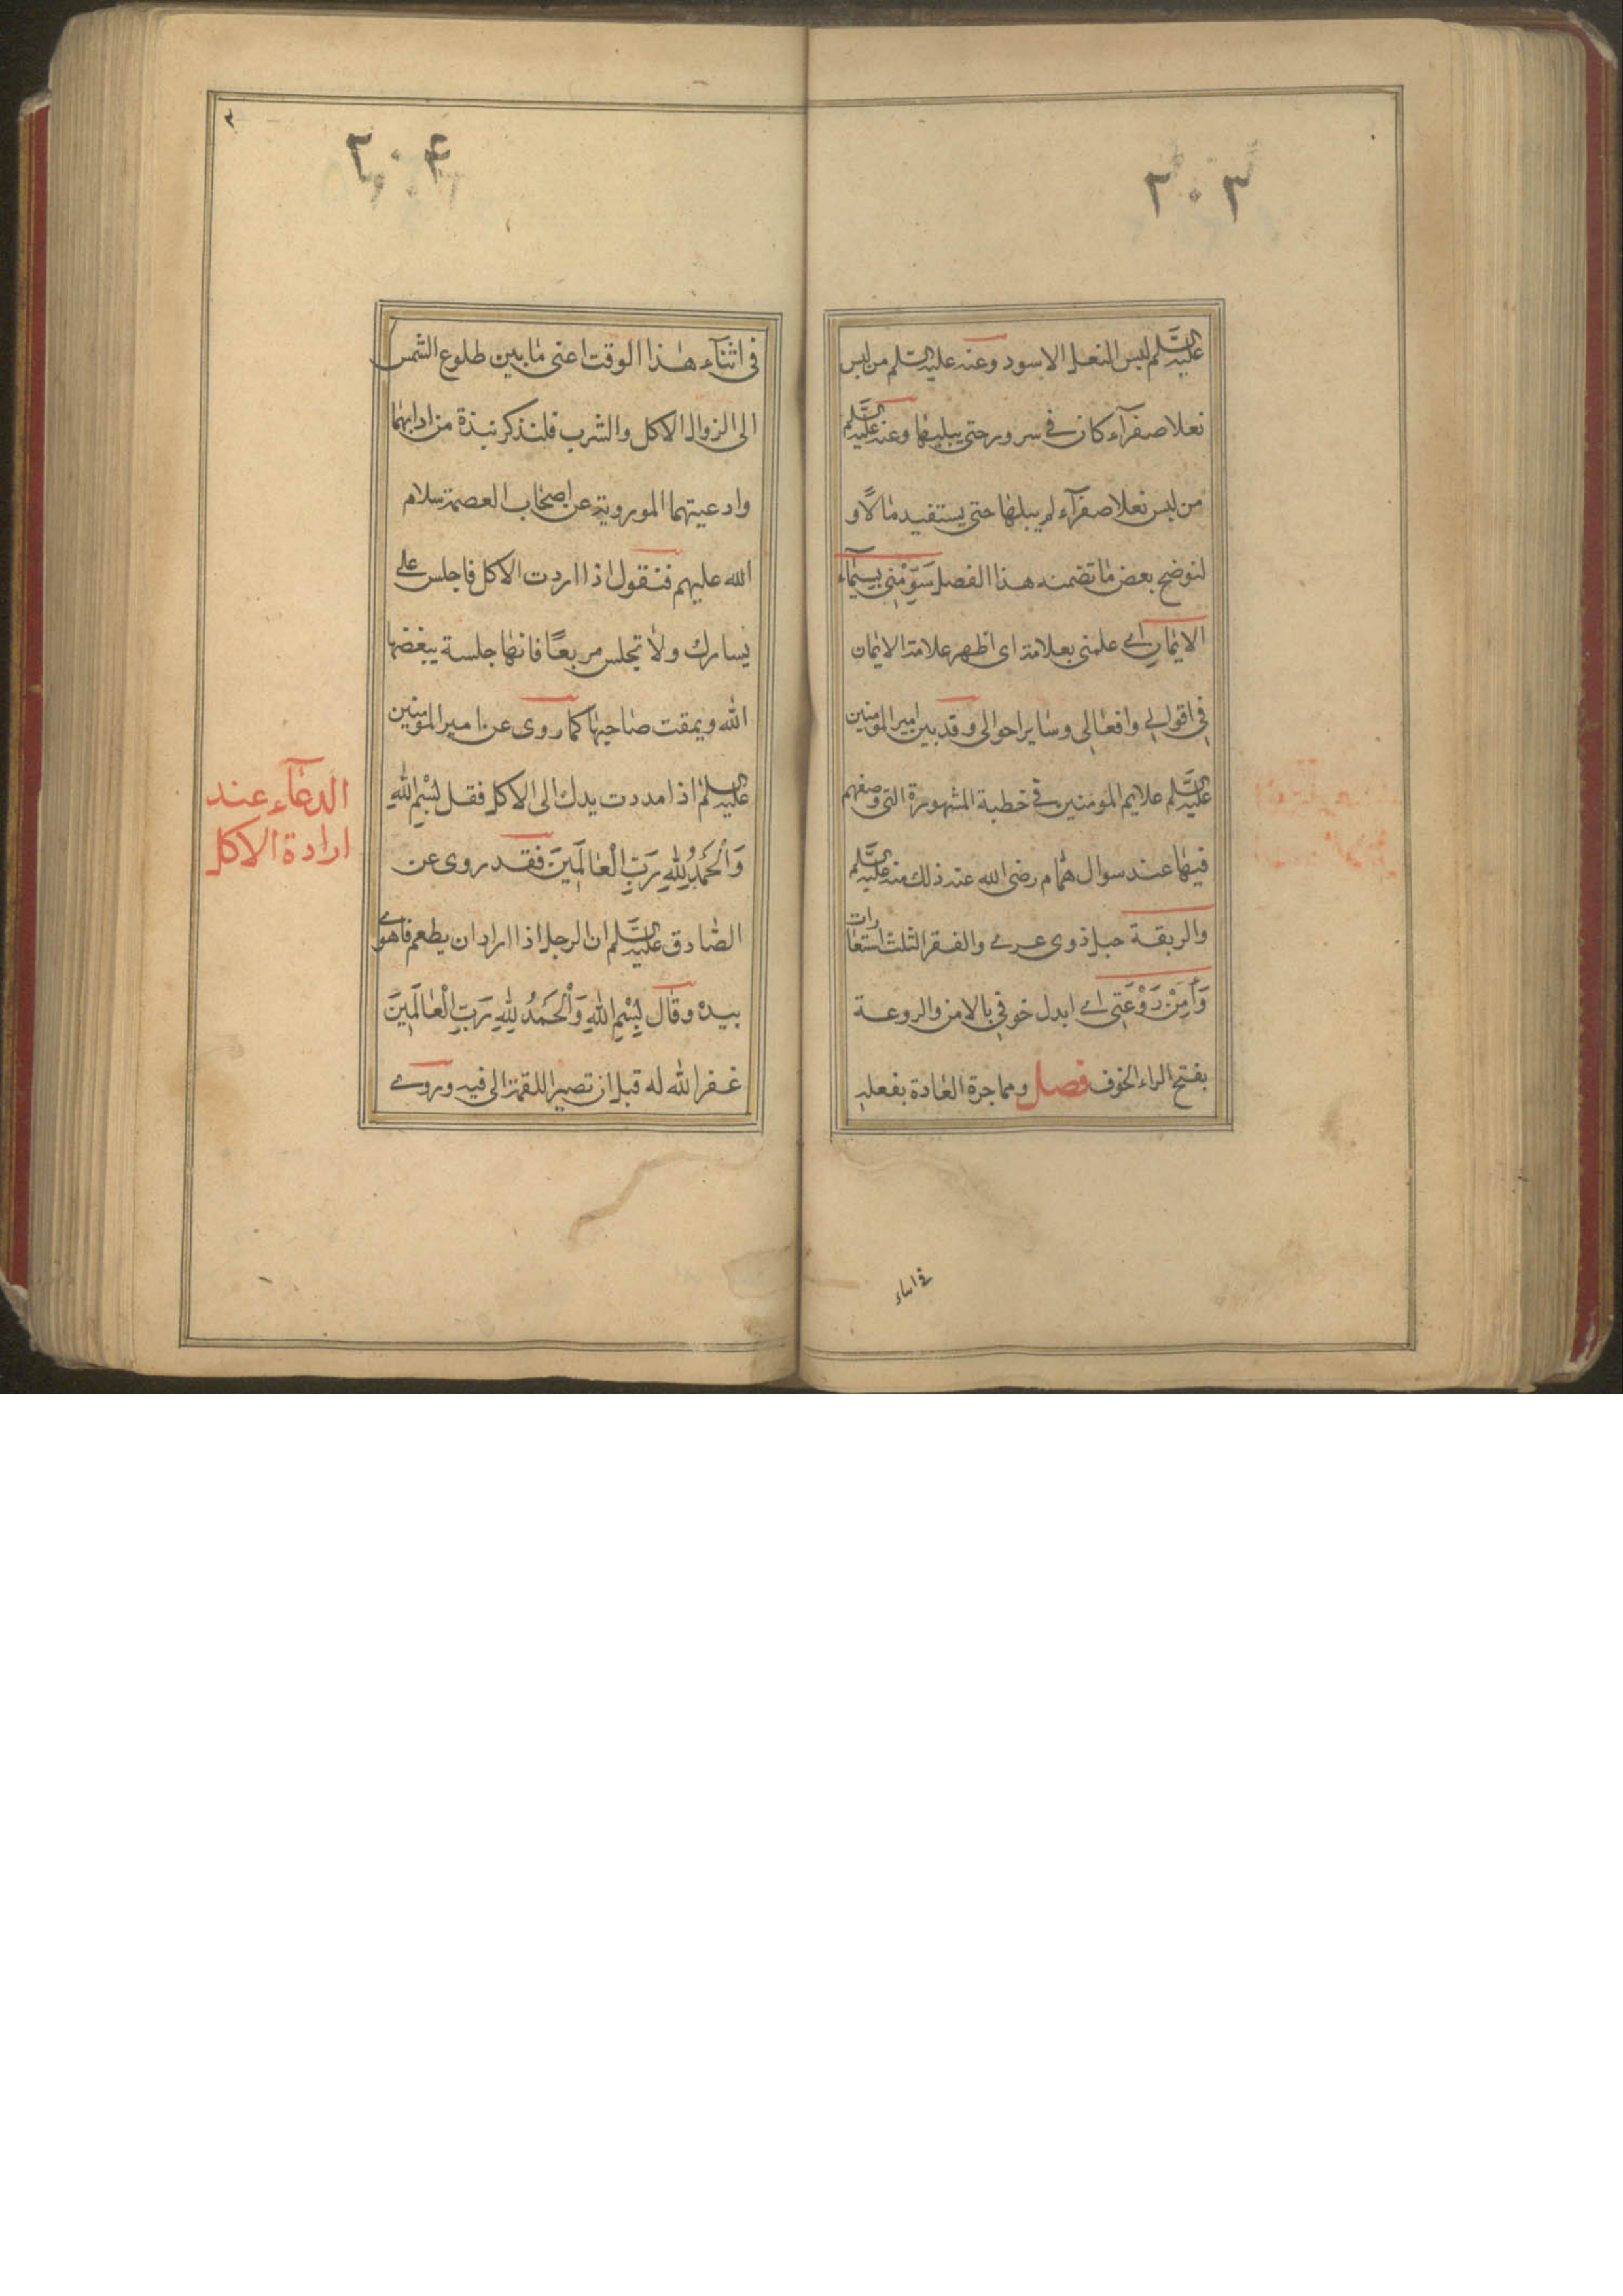 ٢٠٣
عليه السلم لبس النعل الاسود وعنه عليه السلم من لبس
نعلا صفرآء كان فى سرور حتى يبليها وعنه عليه السلم
من لبس نعلا صفرآء لم يبلها حتى يستفيد مالاً و
لنوضح بعض ما تضمنه هذا الفصل سَوِّمْنِى بِسِيمَآءِ
الايمانِ اى علمنى بعلامة اى اظهر علامة الايمان
فى اقوالى وافعالى وساير احوالى وقد بين امير المومنين
عليه السَّلم علايم المومنين فى خطبة المشهورة التى وصفهم
فيها عند سوال همام رضى الله عنه ذلك منه عليه السَّلم
والربقة حبل ذوى عرى والفقر الثلث استعارات
وَآمِنْ رَوْعَتِى اى ابدل خوفى بالامن والروعة
بفتح الراء الخوف فصل ومما جرة العادة بفعله
فى اثناء
٢٠٤
فى اثنآء هذا الوقت اعنى ما بين طلوع الشمس
الى الزوال الاكل والشرب فلنذكر نبذة من ادابهما
وادعيتهما الموروية عن اصحاب العصمة سلام
الله عليهم فنقول اذا اردت الاكل فاجلس على
يسارك ولا تجلس مربعًا فانها جلسة يبغضها
الله ويمقت صاحبها كما روى عن امير المومنين
عليه السلم اذا مددت يدك الى الاكل فقل بِسْمِ اللهِ
وَالْحَمْدُ لِلّهِ رَبِّ الْعَالَمِينَ فقد روى عن
الصادق عليه السَّلم ان الرجل اذا اراد ان يطعم فاهوى
بيده وقال بِسْمِ اللهِ وَالْحَمْدُ لِلّهِ رَبِّ الْعَالَمِينَ
غفر الله له قبل ان تصير اللقمة الى فيه وروى
الدعآء عند
ارادة الاكل